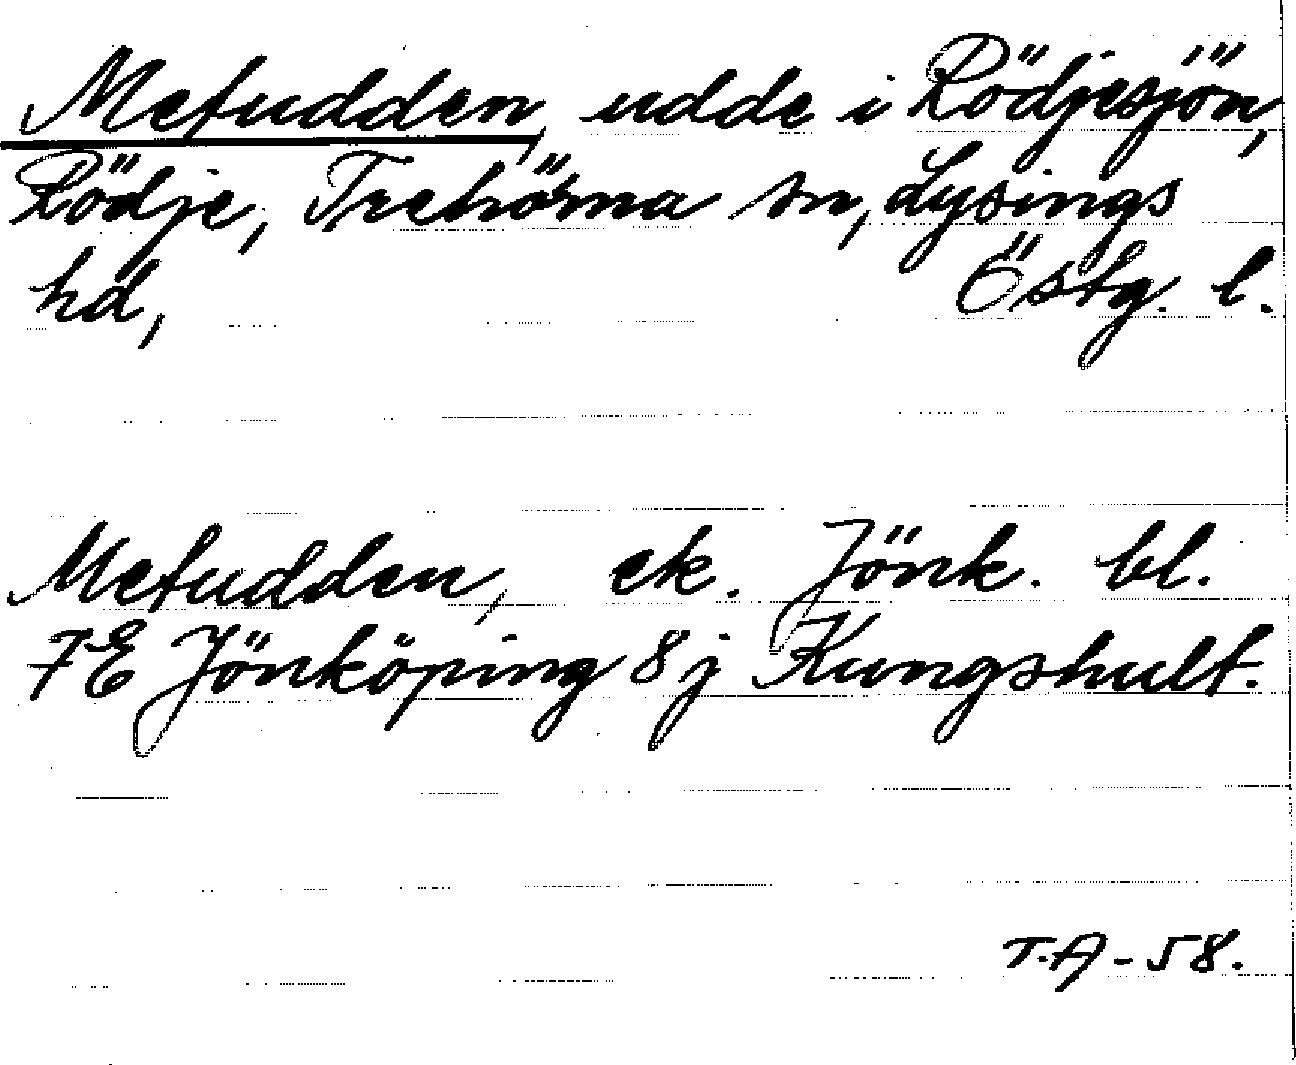 Metudden, udde i Rödjesjön,
Rödje, Trehörna sn, Lysings
hd, Östg. l.
Metudden, ek. Jönk. bl.
7E Jönköping 8j Kungshult.
T.A-58.